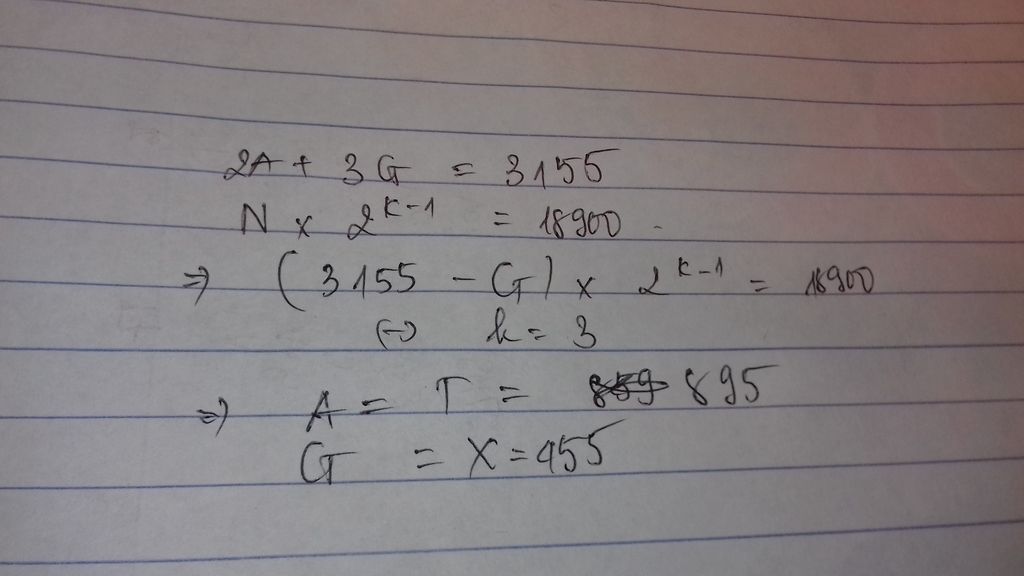 2A + 3G = 3155
N x 2^{K-1} = 18900
=> (3155 - G) x 2^{K-1} = 18900
<=> k = 3
=> A = T = 895
G = X = 455